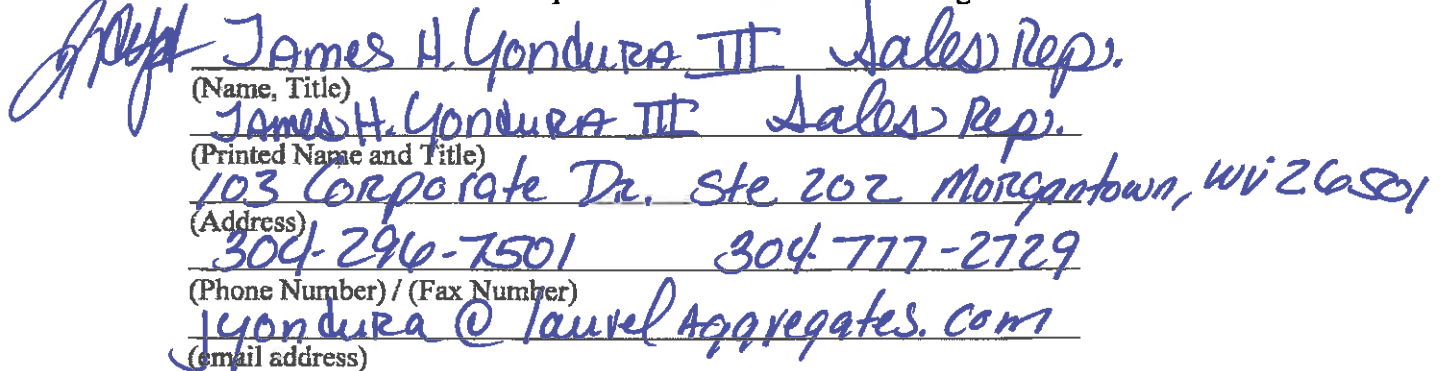 James H. Yondura III Sales Rep.
(Name, Title)
James H. Yondura III Sales Rep.
(Printed Name and Title)
103 Corporate Dr. Ste 202 Morgantown, WV 26501
(Address)
304-296-7501 304-777-2729
(Phone Number) / (Fax Number)
jyondura @ laurelAggregates.com
(email address)